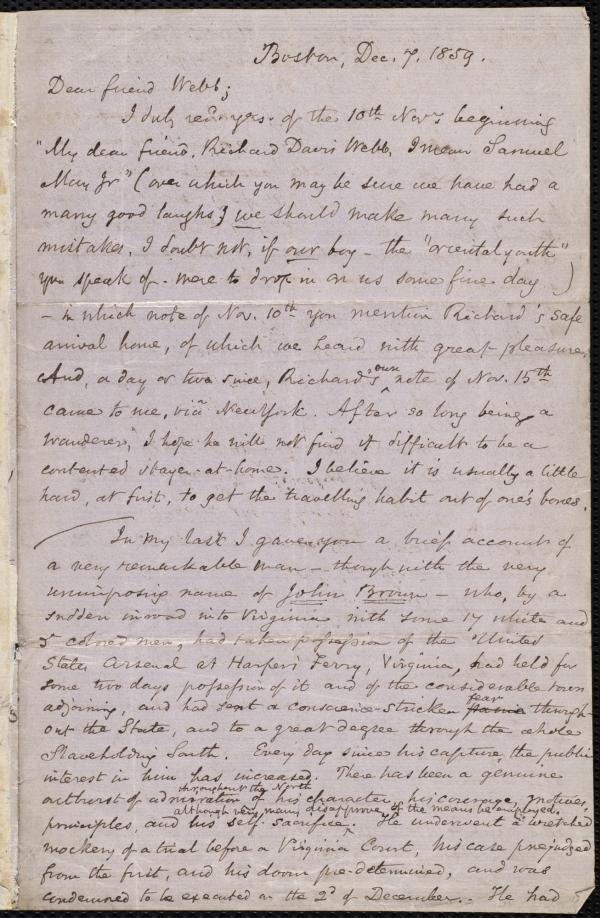 Boston, Dec. 7. 1859.
Dear friend Webb;
I duly recd. yrs. of the 10th Novr. beginning
"My dear friend, Richard Davis Webb, I mean Samuel
May Jr" (over which you may be sure we have had a
many good laughs; we should make many such
mistakes, I doubt not, if our boy - the "oriental youth"
you speak of - were to drop in on us some fine day)
- in which note of Nov. 10th you mention Richard's safe
arrival home, of which we heard with great pleasure.
And, a day or two since, Richard's own note of Nov. 15th
came to me, via New York. After so long being a
wanderer, I hope he will not find it difficult to be a
contented stayer-at-home. I believe it is usually a little
hard, at first, to get the travelling habit out of one's bones.
In my last I gave you a brief account of
a very remarkable man - though with the very
unimposing name of John Brown - who, by a
sudden inroad into Virginia, with some 17 white and
5 colored men, had taken possession of the United
States Arsenal at Harper's Ferry, Virginia, had held for
some two days possession of it and of the considerable town
adjoining, and had sent a conscience-stricken fear through-
out the State, and to a great degree through the whole
Slaveholding South. Every day since his capture, the public
interest in him has increased. There has been a genuine
outburst of admiration throughout the North of his character, his courage, motives,
principles, and his self-sacrifice, although very many disapprove of the means he employed. He underwent a wretched
mockery of a trial before a Virginia Court, his case prejudged
from the first, and his doom pre-determined, and was
condemned to be executed on the 2d of December. He had